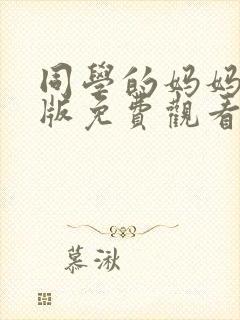 同學的媽媽
版免費觀看
慕湫